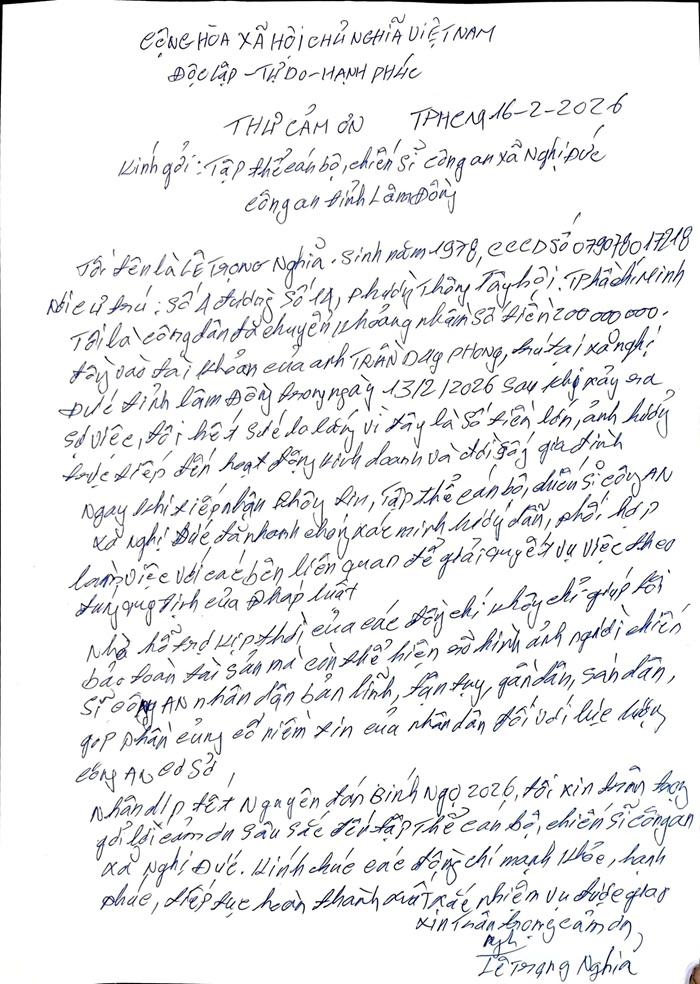 CỘNG HÒA XÃ HỘI CHỦ NGHĨA VIỆT NAM
Độc Lập - Tự Do - HẠNH PHÚC
THƯ CẢM ƠN TPHCM 16-2-2026
Kính gởi: Tập thể cán bộ, chiến sĩ công an xã Nghị Đức
Công an tỉnh Lâm Đồng
Tôi tên là LÊ TRỌNG Nghĩa. Sinh năm 1978, CCCD Số 079078017218
Nơi cư trú: Số 4 đường Số 1A, phường Thông Tây hội, TP hồ chí Minh
Tôi là công dân đã chuyển khoảng nhầm số tiền 200 000 000.
đồng vào tài khoản của anh TRẦN DUY PHONG, trú tại xã nghị
Đức tỉnh lâm Đồng trong ngày 13/2/2026 sau khi xảy ra
sự việc, tôi hết sức lo lắng vì đây là số tiền lớn, ảnh hưởng
trực tiếp đến hoạt động kinh doanh và đời sống gia đình
Ngay khi tiếp nhận thông tin, Tập thể cán bộ, chiến sĩ công AN
xã Nghị Đức đã nhanh chóng xác minh hướng dẫn, phối hợp
làm việc với các bên liên quan để giải quyết vụ việc theo
đúng quy định của Pháp luật
Nhờ hỗ trợ kịp thời của các đồng chí không chỉ giúp tôi
bảo toàn tài sản mà còn thể hiện rõ hình ảnh người chiến
sĩ công AN nhân dân bản lĩnh, tận tụy, gần dân, sát dân,
góp phần củng cố niềm tin của nhân dân đối với lực lượng
công AN cơ sở
Nhân dịp tết Nguyên đán Bính Ngọ 2026, tôi xin trân trọng
gởi lời cảm ơn sâu sắc đến tập Thể cán bộ, chiến sĩ công an
xã Nghị Đức. Kính chúc các đồng chí mạnh khỏe, hạnh
phúc, tiếp tục hoàn thành xuất sắc nhiệm vụ được giao
xin Trân trọng cảm ơn,
Lê Trọng Nghĩa